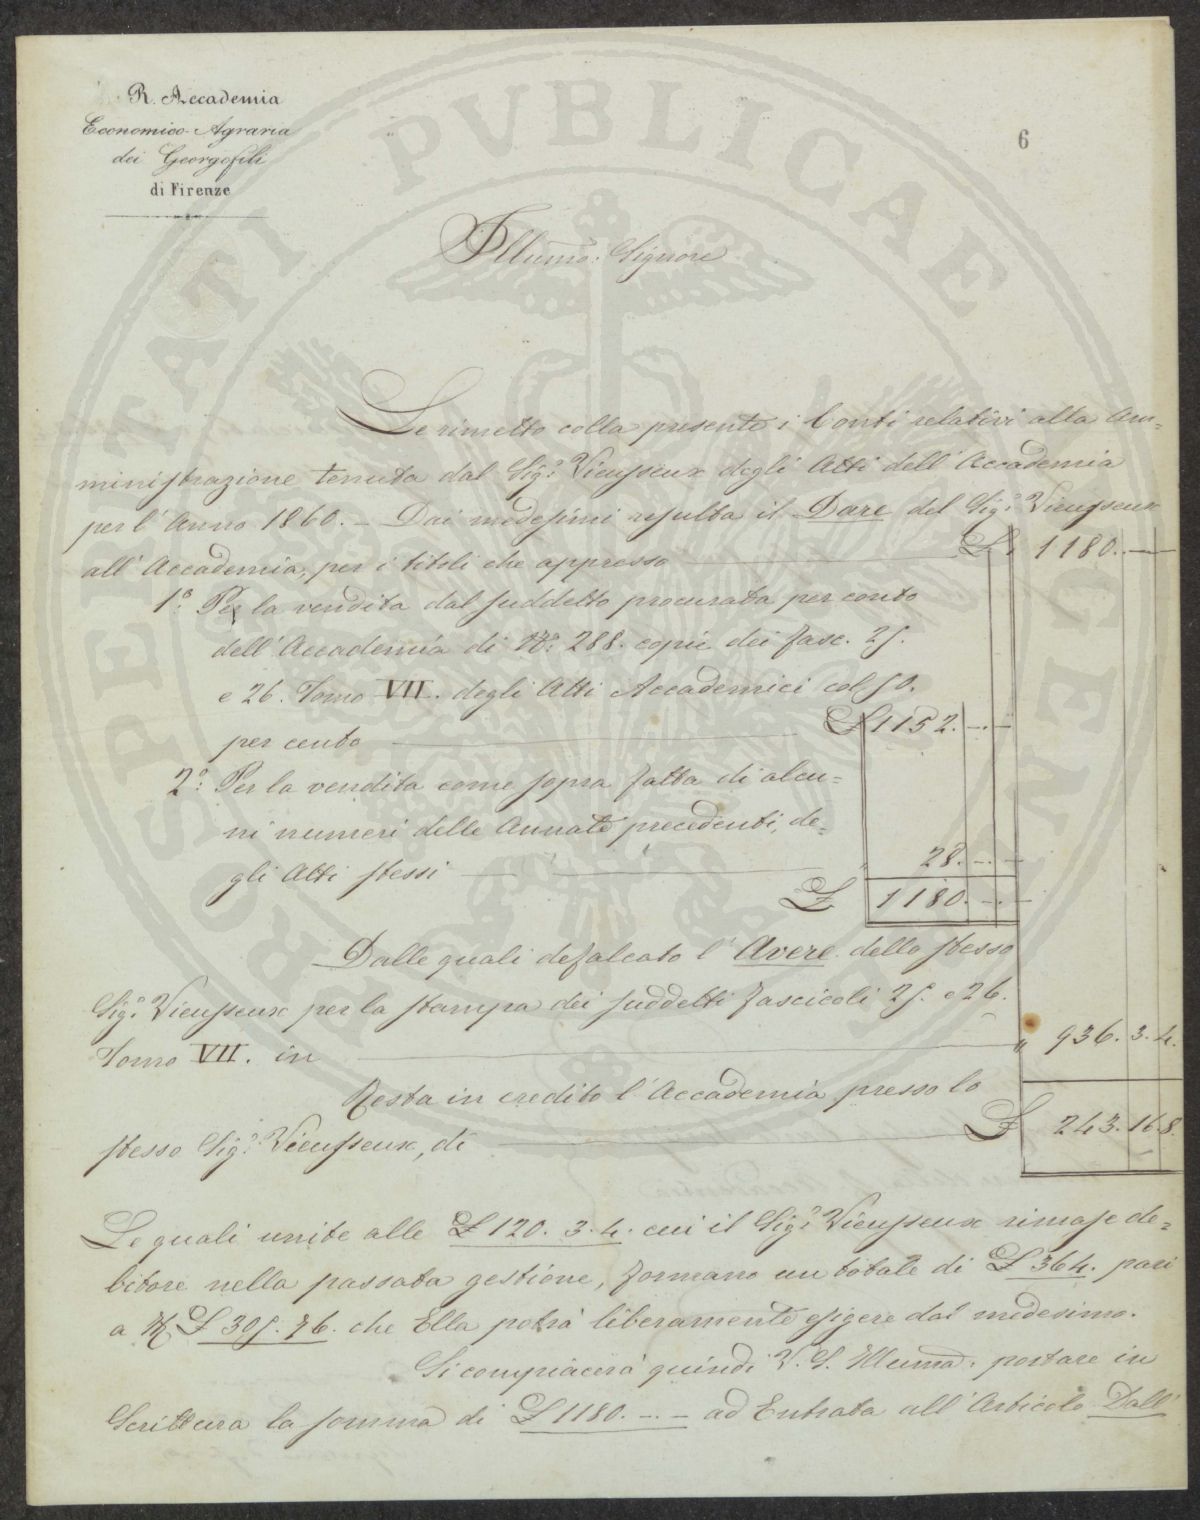 R. Accademia
Economico-Agraria
dei Georgofili
di Firenze
6
Illumo: Signore
Le rimetto colla presente i Conti relativi alla Am=
ministrazione tenuta dal Sigr. Vieusseux degli Atti dell'Accademia
per l'Anno 1860. – Dai medesimi resulta il Dare del Sigr. Vieusseux
all'Accademia, per i titoli che appresso £ 1180. – –
1o. Per la vendita dal suddetto procurata per conto
dell'Accademia di No. 288. copie dei fasc. 25.
e 26. Tomo VII. degli Atti Accademici col 50.
per cento £ 1152. – –
2o. Per la vendita come sopra fatta di alcu=
ni numeri delle Annate precedenti, de=
gli Atti stessi " 28. – –
£ 1180. – –
Dalle quali defalcato l'Avere dello stesso
Sigr. Vieusseux per la stampa dei suddetti fascicoli 25. e 26.
Tomo VII. in " 936. 3. 4.
Resta in credito l'Accademia presso lo
stesso Sigr. Vieusseux, di £ 243. 16. 8.
Le quali unite alle £ 120. 3. 4. cui il Sigr. Vieusseux rimase de=
bitore nella passata gestione, formano un totale di £ 364. pari
a £ 305. 76. che Ella potrà liberamente esigere dal medesimo.
Si compiacerà quindi V. S. Illuma. portare in
Scrittura la somma di £ 1180. – – ad Entrata all'Articolo Dall'
PROSPERITATI PUBLICAE AUGENDAE